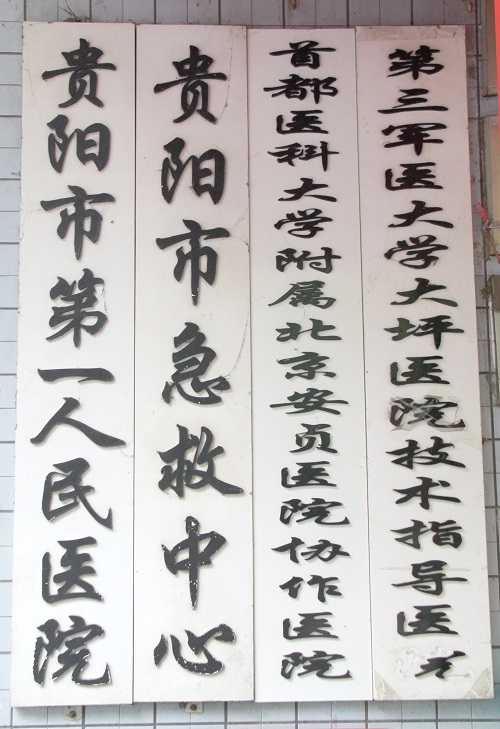 贵阳市第一人民医院
贵阳市急救中心
首都医科大学附属北京安贞医院协作医院
第三军医大学大坪医院技术指导医